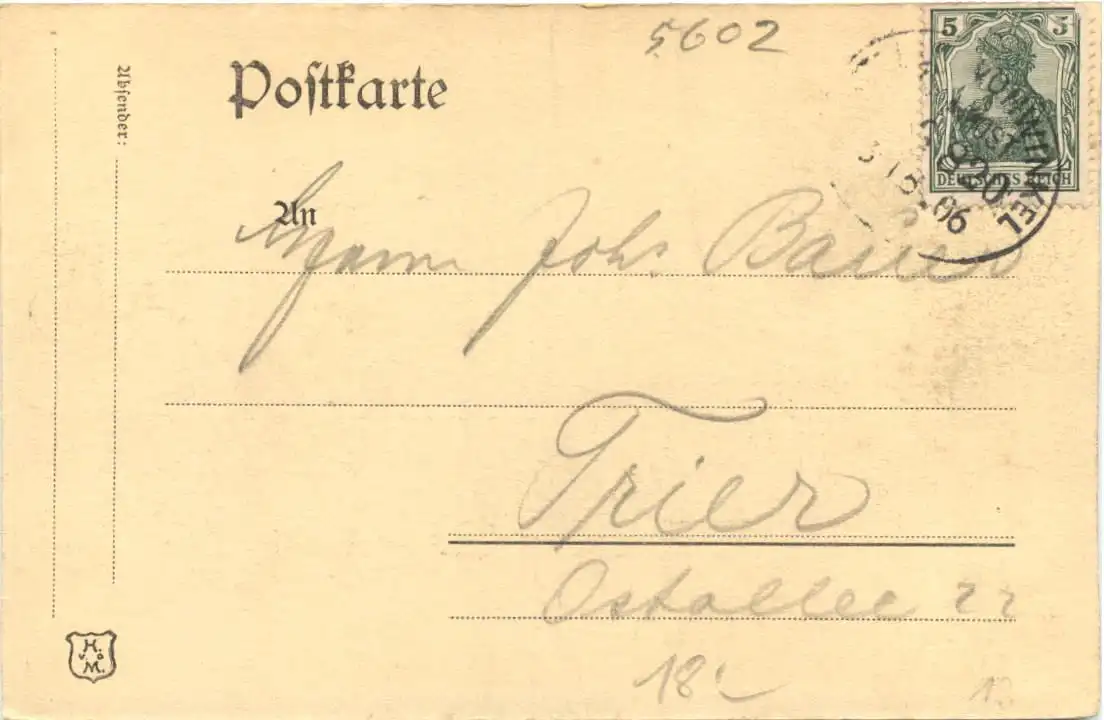 5602
5 5
DEUTSCHES REICH
VOHWINKEL
820
06
Postkarte
Absender:
An
Herrn Joh. Bauer
Trier
Ostallee 22
18.-
H.
v. o
M.